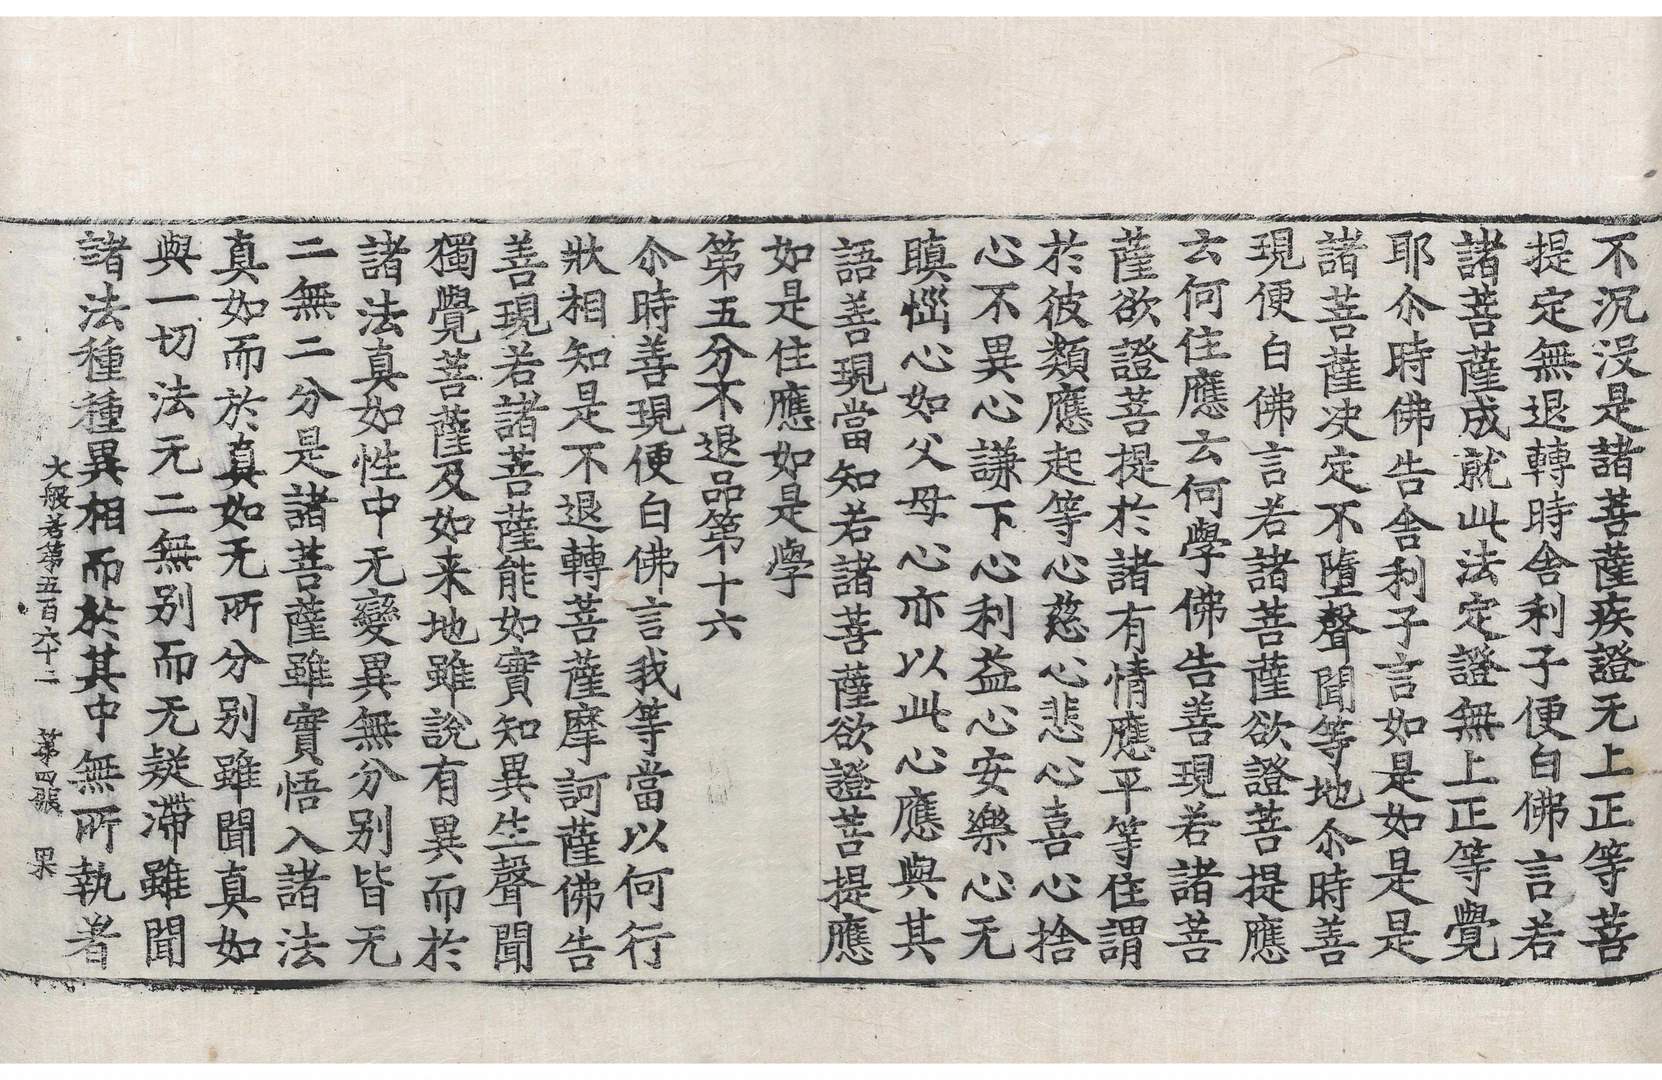 不沉没是諸菩薩疾證无上正等菩
提定無退轉時舍利子便白佛言若
諸菩薩成就此法定證無上正等覺
耶尒時佛告舍利子言如是如是是
諸菩薩决定不墮聲聞等地尒時善
現便白佛言若諸菩薩欲證菩提應
云何住應云何學佛告善現若諸菩
薩欲證菩提於諸有情應平等住謂
於彼類應起等心慈心悲心喜心捨
心不異心謙下心利益心安樂心无
瞋惱心如父母心亦以此心應與其
語善現當知若諸菩薩欲證菩提應
如是住應如是學
第五分不退品第十六
尒時善現便白佛言我等當以何行
狀相知是不退轉菩薩摩訶薩佛告
善現若諸菩薩能如實知異生聲聞
獨覺菩薩及如来地雖說有異而於
諸法真如性中无變異無分別皆无
二無二分是諸菩薩雖實悟入諸法
真如而於真如无所分別雖聞真如
與一切法无二無別而无疑滯雖聞
諸法種種異相而於其中無所執著
大般若第五百六十二 第四張 果